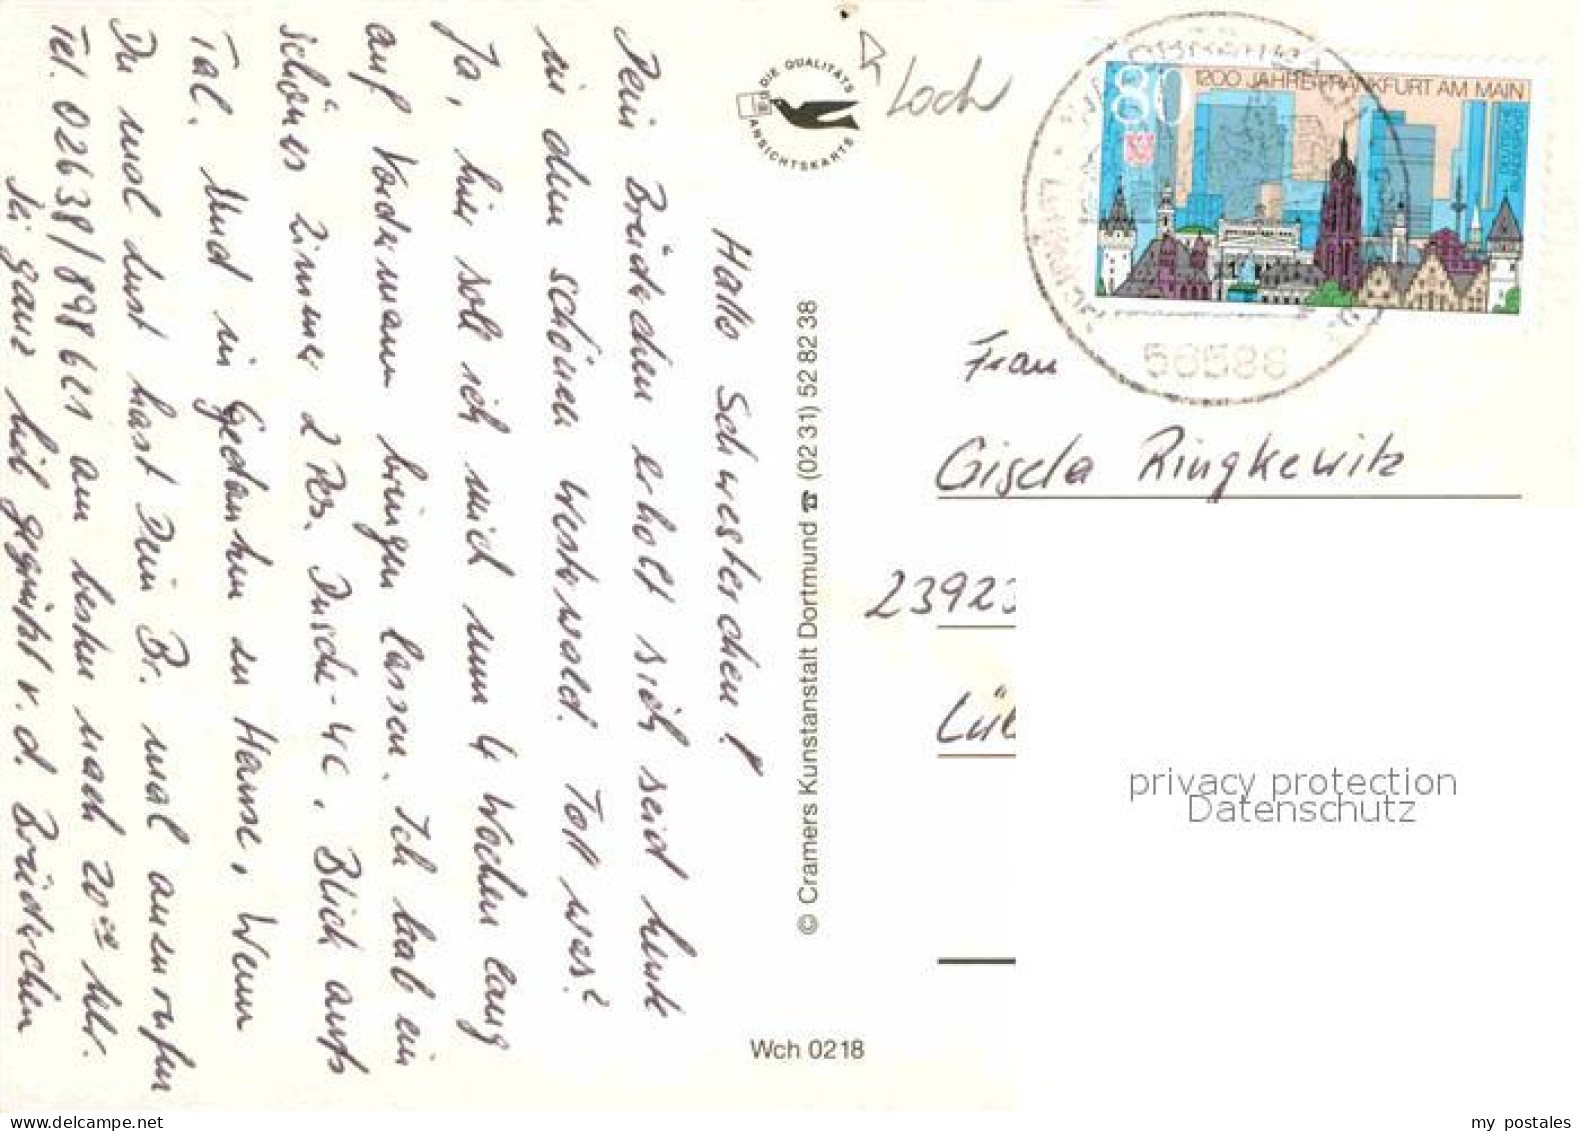 Hallo Schwesterchen!
Dein Brüderchen erholt sich seid heute
in dem schönen Westerwald. Toll was?
Ja, hier soll ich mich nun 4 Wochen lang
auf Vordermann bringen lassen. Ich hab ein
schönes Zimmer 2 Pers. Dusche-WC. Blick aufs
Tal. Und in Gedanken zu Hause. Wenn
Du mal Lust hast Dein Br. mal anzurufen
Tel. 02638/898621 am besten nach 20⁰⁰ Uhr.
Sei ganz lieb gegrüßt v. d. Brüderchen
DIE QUALITÄTS
ANSICHTSKARTE
Loch
© Cramers Kunstanstalt Dortmund ☎ (02 31) 52 82 38
Wch 0218
80
1200 JAHRE FRANKFURT AM MAIN
DEUTSCHE
BUNDESPOST
56588
Frau
Gisela Ringkewitz
23923
Lü
privacy protection
Datenschutz
my postales